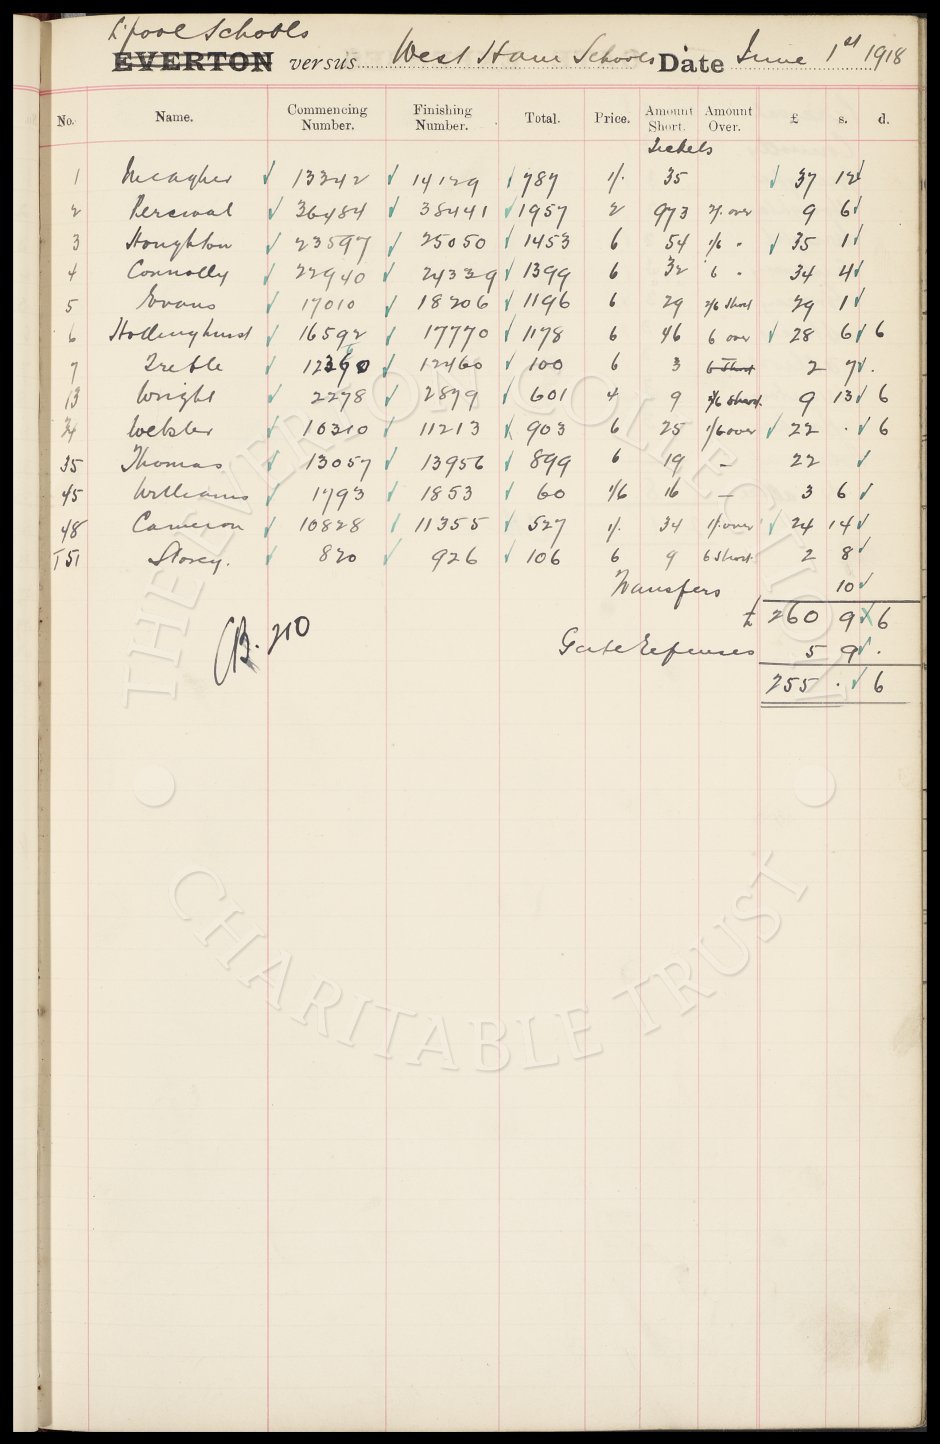 L'pool Schools
EVERTON versus West Ham Schools Date June 1st 1918
No. Name. Commencing Number. Finishing Number. Total. Price. Amount Short. Amount Over. £ s. d.
Tickets
1 Meagher 13342 14129 787 1/. 35 37 12
2 Percival 36484 38441 1957 2 973 2/. over 9 6
3 Houghton 23597 25050 1453 6 54 1/6 " 35 1
4 Connolly 22940 24339 1399 6 32 6 " 34 4
5 Evans 17010 18206 1196 6 29 2/6 Short 29 1
6 Hollinghurst 16592 17770 1178 6 46 6 over 28 6 6
7 Treble 12360 12460 100 6 3 6 Short 2 7 .
13 Wright 2278 2879 601 4 9 3/6 Short. 9 13 6
34 Webster 10310 11213 903 6 25 1/6 over 22 . 6
35 Thomas 13057 13956 899 6 19 – 22
45 Williams 1793 1853 60 1/6 16 – 3 6
48 Cameron 10828 11355 527 1/. 34 1/. over 24 14
T 51 Storey. 820 926 106 6 9 6 Short 2 8
Transfers 10
£ 260 9 6
CB. 210 Gate Expenses 5 9 .
255 . 6
THE EVERTON COLLECTION
CHARITABLE TRUST